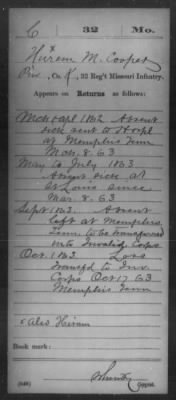 C 32 Mo.
Hiram M. Cooper
Pvt., Co. K, 32 Reg't Missouri Infantry.
Appears on Returns as follows:
Mch & Apl 1863 Absent
sick sent to Hospl
at Memphis Tenn
Mar. 8. 63
May to July 1863.
Absent sick at
St Louis since
Mar. 8. 63
Sept 1863. Absent
left at Memphis,
Tenn. to be transferred
into Invalid Corps
Oct. 1863. Loss
Transf'd to Inv.
Corps Oct 17. 63
Memphis Tenn
x Also Hiram
Book mark:
(546)
Copyist.